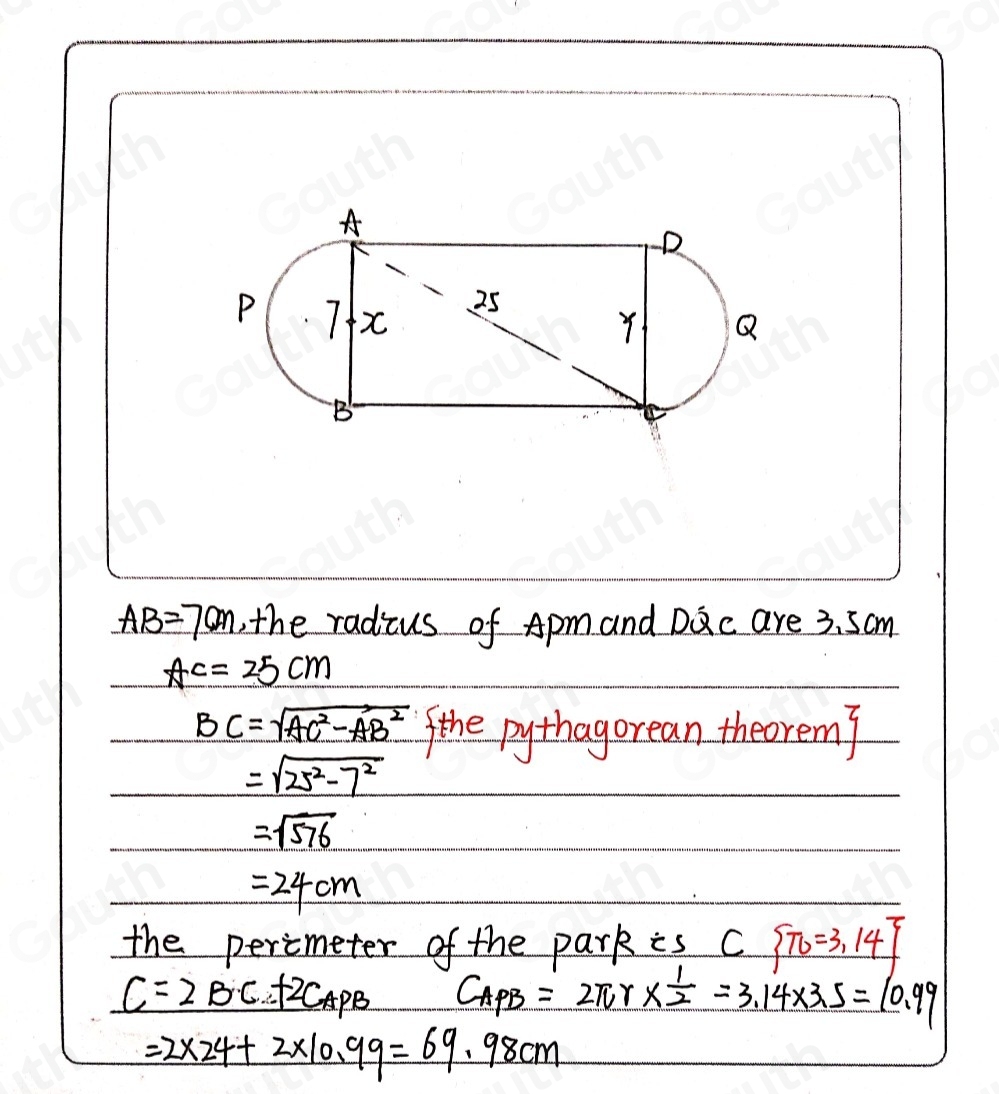 A
D
P
7
x
25
Y
Q
B
C
AB=7cm, the radius of APM and DQC are 3.5cm
AC= 25 cm
BC=√AC²-AB² {the pythagorean theorem}
=√25²-7²
=√576
=24cm
the perimeter of the park is C {π=3.14}
C=2BC+2CAPB CAPB = 2πr×1/2 =3.14×3.5=10.99
=2×24+ 2×10.99= 69.98cm
Gauth